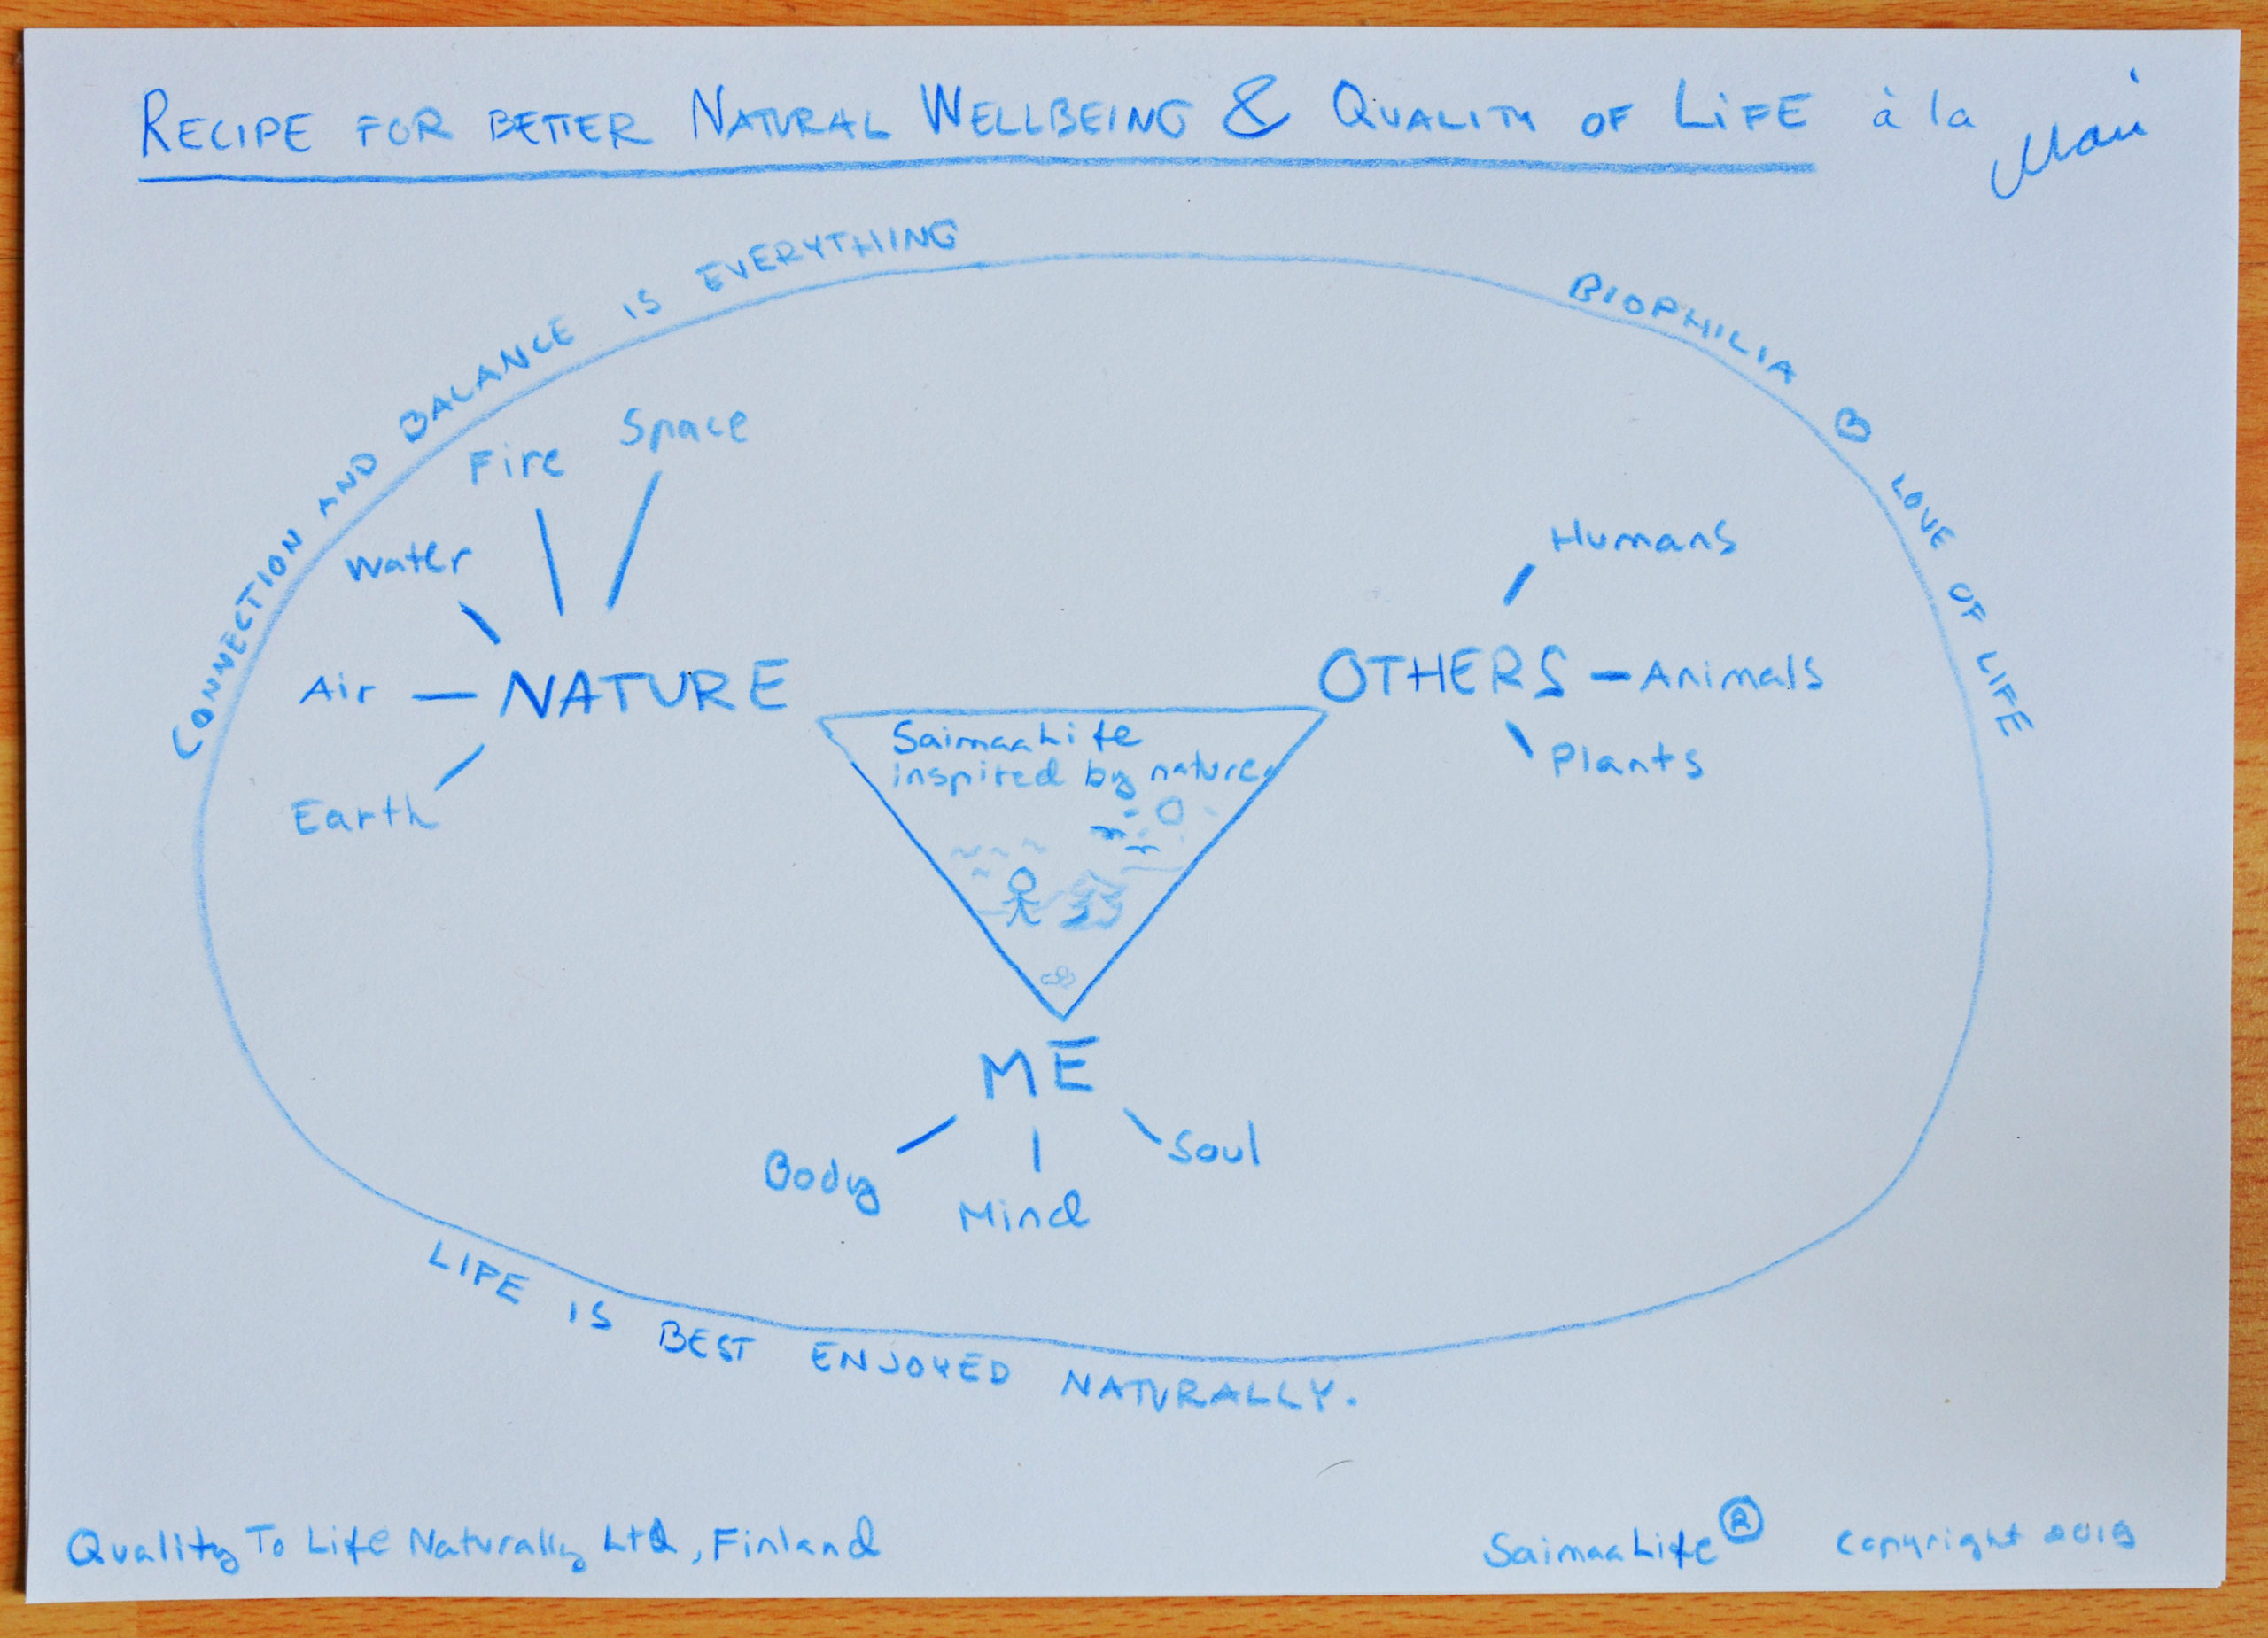 RECIPE FOR BETTER NATURAL WELLBEING & QUALITY OF LIFE à la Mari
CONNECTION AND BALANCE IS EVERYTHING
BIOPHILIA B LOVE OF LIFE
Space
Fire
Water
Air
Earth
NATURE
Humans
OTHERS
Animals
Plants
SaimaaLife
inspired by nature
ME
Body
Mind
Soul
LIFE IS BEST ENJOYED NATURALLY.
Quality To Life Naturally Ltd, Finland
SaimaaLife® Copyright 2019